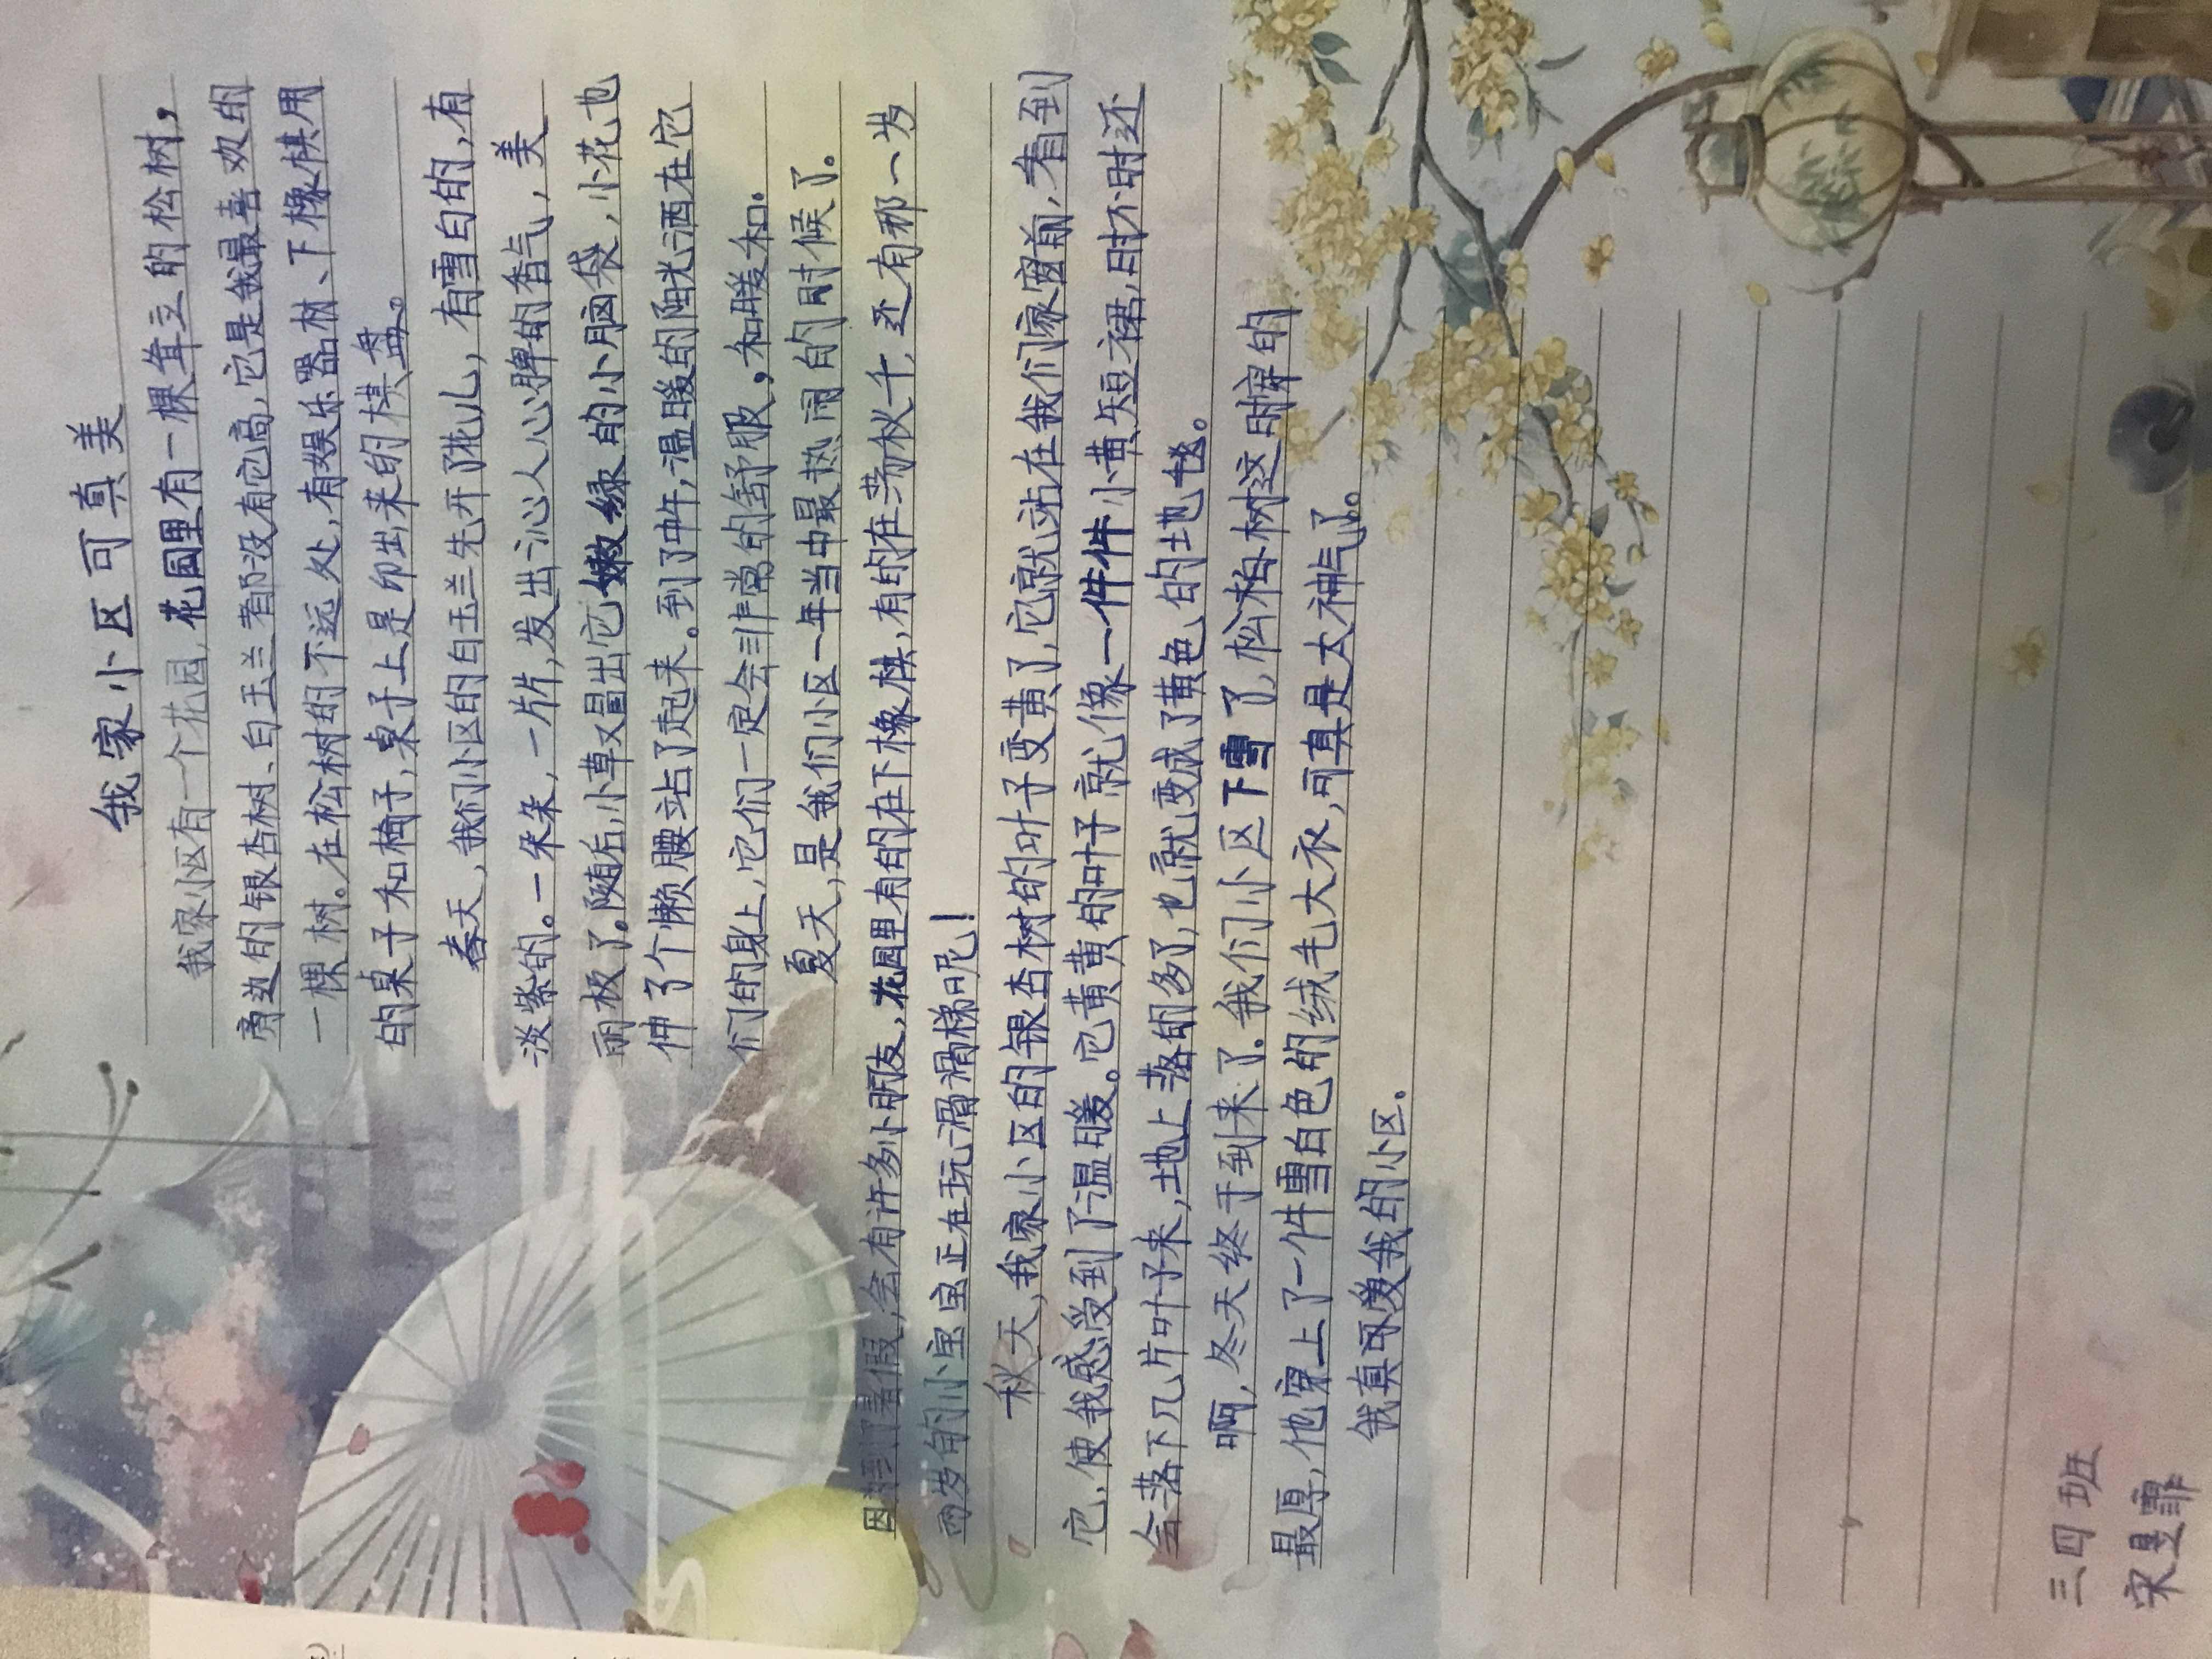 我家小区可真美
我家小区有一个花园,花园里有一棵耸立的松树,
旁边的银杏树、白玉兰都没有它高,它是我最喜欢的
一棵树。在松树的不远处,有娱乐器材、下橡棋用
的桌子和椅子,桌子上是印出来的棋盘。
春天,我们小区的白玉兰先开了花儿,有雪白的,有
淡紫的。一朵朵,一片片,发出沁人心脾的香气,美
丽极了。随后,小草又冒出它嫩绿的小脑袋,小花也
伸了个懒腰站了起来。到了中午,温暖的阳光洒在它
们的身上,它们一定会非常的舒服,和暖和。
夏天,是我们小区一年当中最热闹的时候了。
因为到了暑假,会有许多小朋友,花园里有的在下橡棋,有的在荡秋千,还有那一岁
两岁的小宝宝正在玩滑滑梯呢!
秋天,我家小区的银杏树的叶子变黄了,它就站在我们家窗前,看到
它,使我感受到了温暖。它黄黄的叶子就像一件件小黄短裙,时不时还
会落下几片叶子来,地上落的多了,也就变成了黄色的地毯。
啊,冬天终于到来了.我们小区下雪了,松柏树这时穿的
最厚,他穿上了一件雪白色的绒毛大衣,可真是太神气了。
我真可爱我的小区.
三四班
宋曼霏